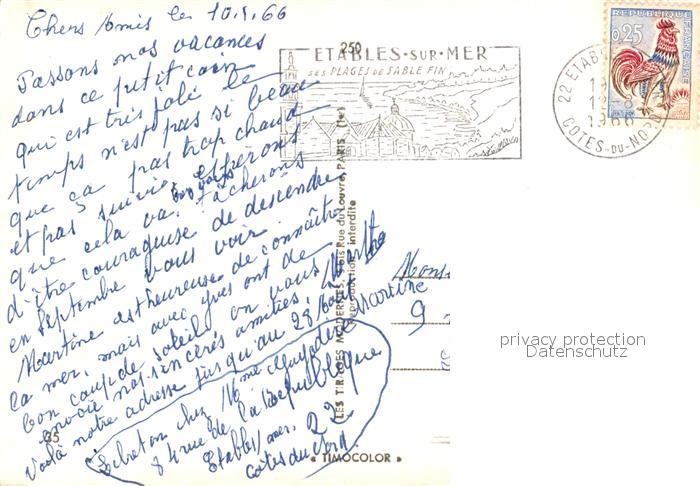 Chers Amis le 10.8.66
Passons nos vacances
dans ce petit coin
qui est très joli le
temps n'est pas si beau
que ça pas trop chaud
et pas suivie espérons
que cela va tâcherons
d'être courageuse de descendre
en Septembre vous voir
Martine est heureuse de connaître
la mer, mais avec Yves ont de
bon coup de soleil on vous
envoie nos sincères amitiés
Martine
Voilà notre adresse jusqu'au 28 Août
chez Mme
84 rue de la République
Etables / mer. 22
Côtes du Nord.
250
ETABLES-SUR-MER
SES PLAGES DE SABLE FIN
REPUBLIQUE FRANCAISE
0,25
22 ETABLES
1966
COTES-DU-NORD
LES TIRAGES MODERNES, 5 bis Rue du Louvre, PARIS (1e)
Reproduction interdite
Mons
9
privacy protection
Datenschutz
35
« TIMOCOLOR »